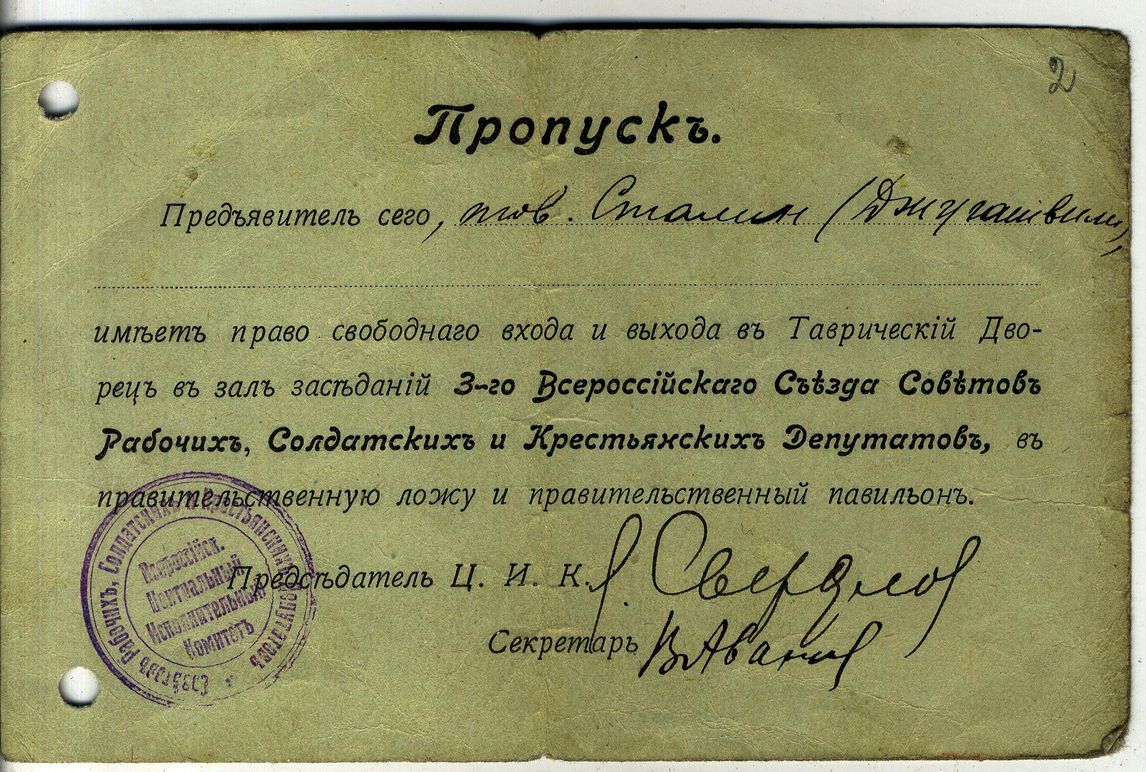 2
Пропускъ.
Предъявитель сего, тов. Сталин (Джугашвили),
имѣетъ право свободнаго входа и выхода въ Таврическій Дво-
рецъ въ залъ засѣданій 3-го Всероссійскаго Съѣзда Совѣтовъ
Рабочихъ, Солдатскихъ и Крестьянскихъ Депутатовъ, въ
правительственную ложу и правительственный павильонъ.
Предсѣдатель Ц. И. К. Я. Свердлов
Секретарь В Аванесов
Всероссійск.
Центральный
Исполнительный
Комитетъ
Совѣтовъ Рабочихъ, Солдатскихъ и Крестьянскихъ Депутатовъ